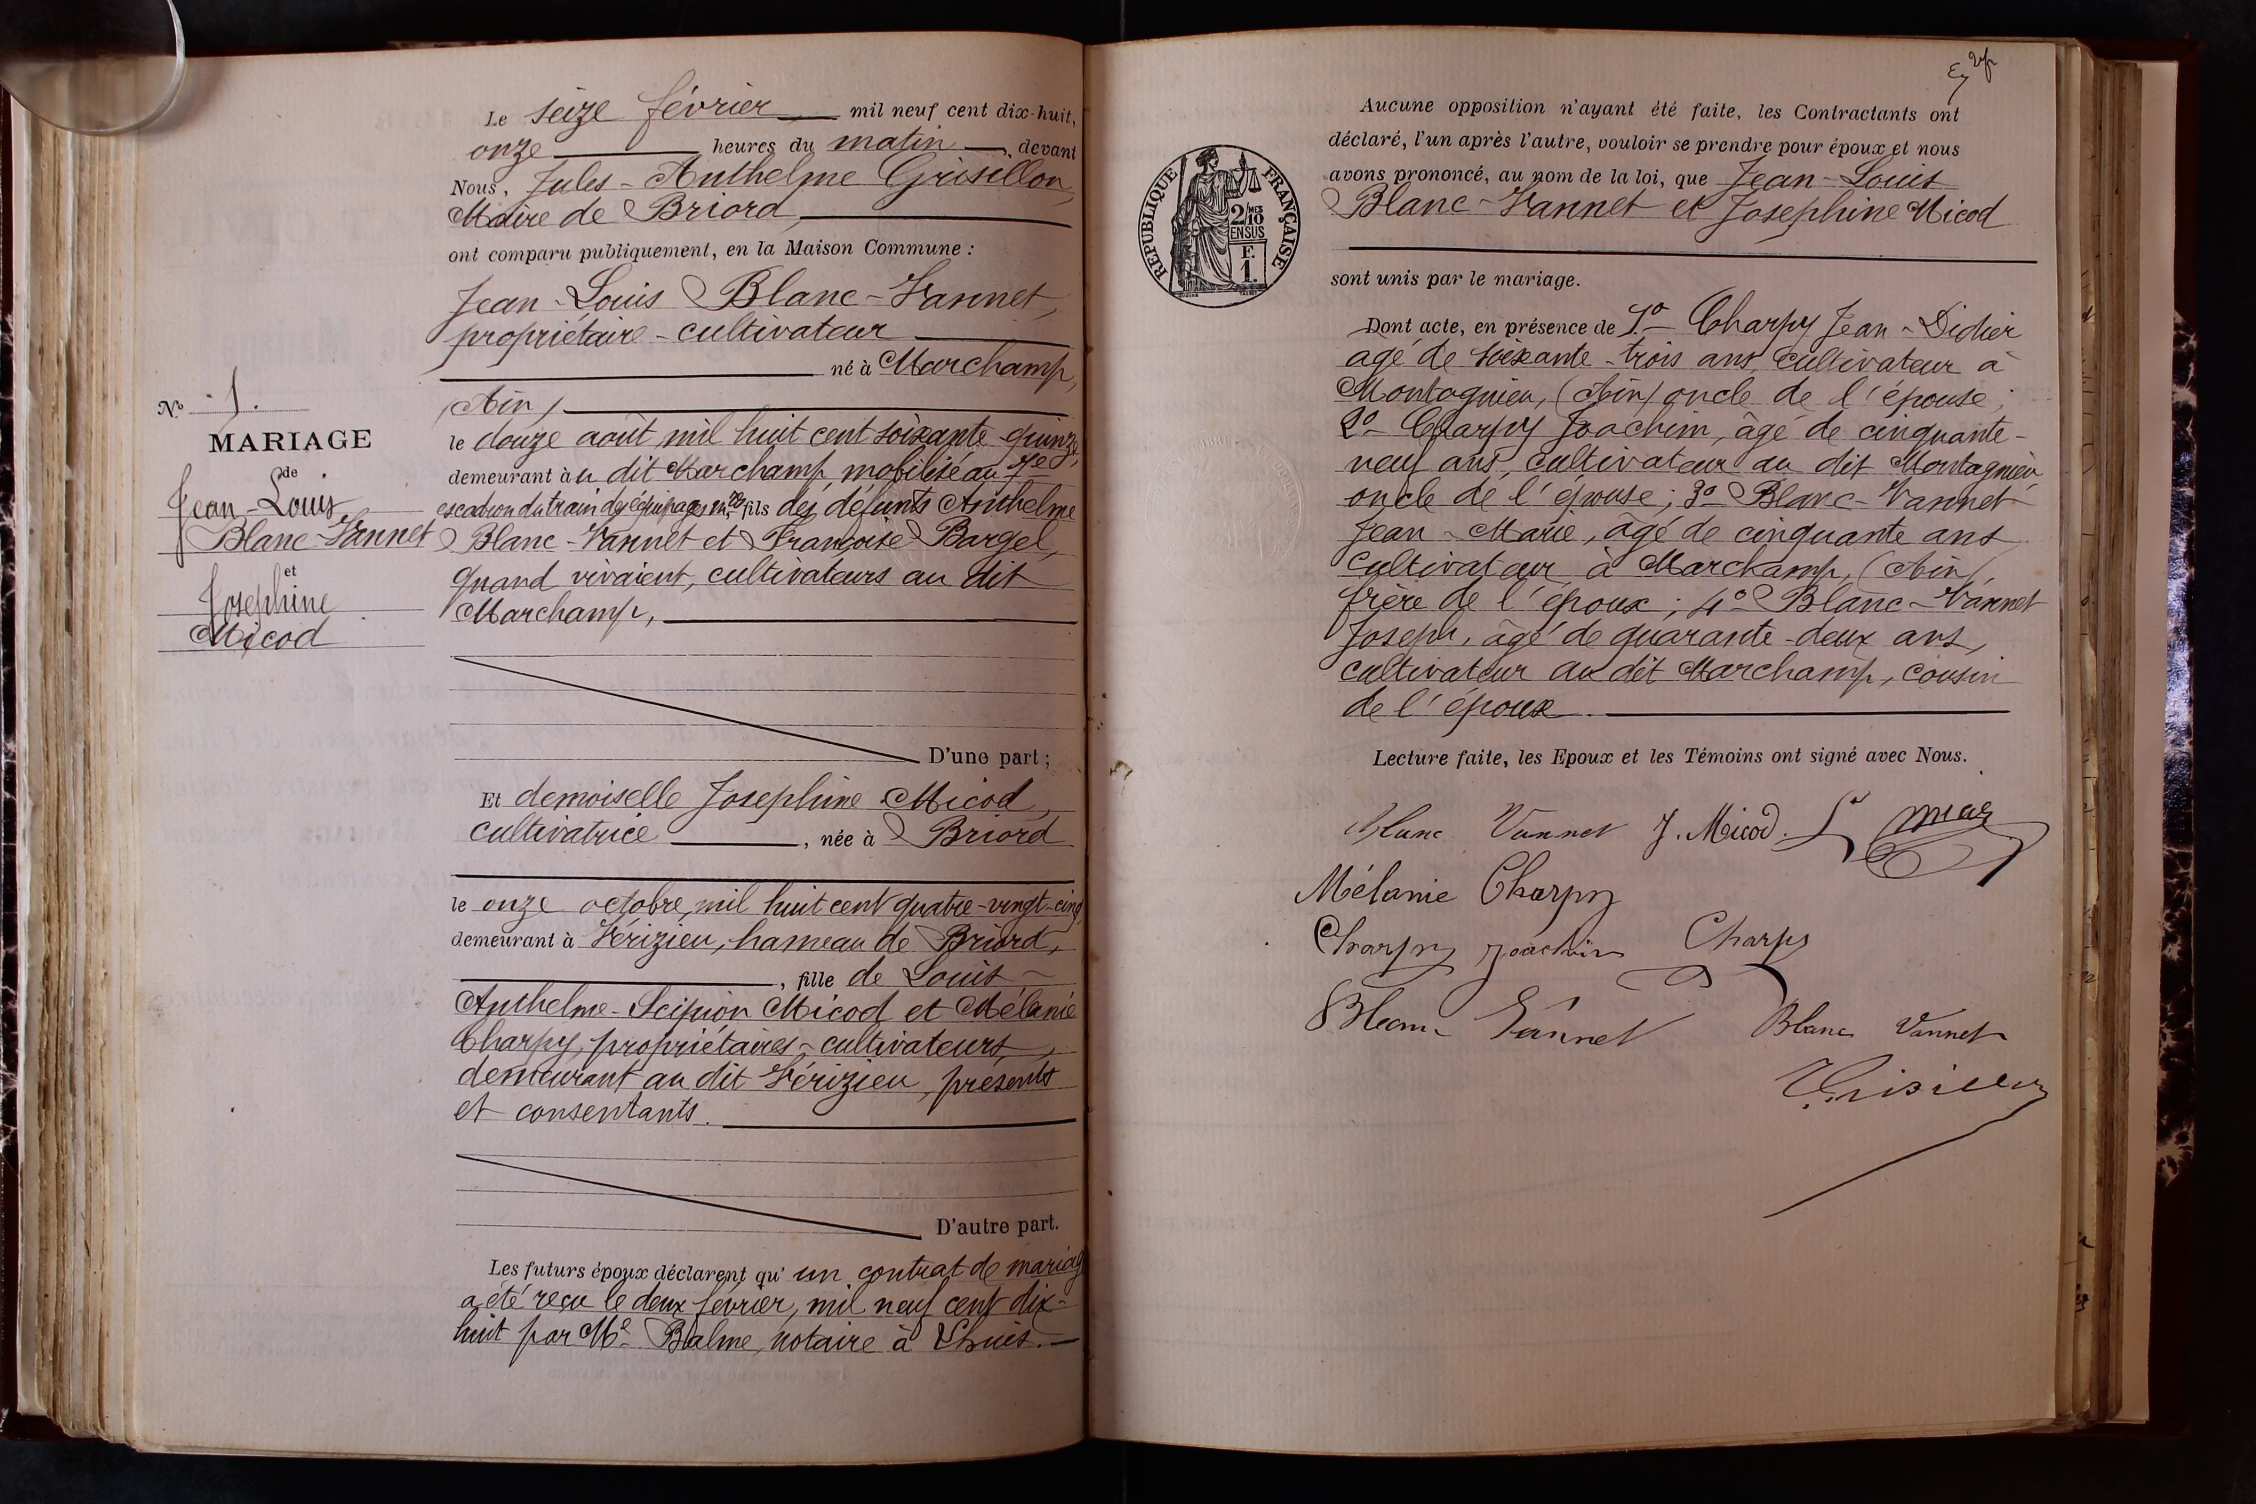 Le seize février mil neuf cent dix-huit,
onze heures du matin, devant
Nous, Jules-Anthelme Grisillon,
Maire de Briord,
ont comparu publiquement, en la Maison Commune :
Jean-Louis Blanc-Vannet,
propriétaire-cultivateur
né à Marchamp,
(Ain)
le douze août mil huit cent soixante-quinze,
demeurant au dit Marchamp, mobilisé au 7e
escadron du train des équipages mres fils des défunts Anthelme
Blanc-Vannet et Françoise Bargel,
quand vivaient, cultivateurs au dit
Marchamp,
D'une part ;
Et demoiselle Josephine Micod,
cultivatrice, née à Briord
le onze octobre, mil huit cent quatre-vingt-cinq
demeurant à Vérizieu, hameau de Briord,
, fille de Louis-
Anthelme-Scipion Micod et Mélanie
Charpy, propriétaires-cultivateurs,
demeurant au dit Vérizieu, présents
et consentants.
D'autre part.
Les futurs époux déclarent qu'un contrat de mariage
a été reçu le deux février, mil neuf cent dix-
huit par Me Balme, notaire à Lhuis.
No 1.
MARIAGE
de
Jean-Louis
Blanc-Vannet
et
Josephine
Micod
Aucune opposition n'ayant été faite, les Contractants ont
déclaré, l'un après l'autre, vouloir se prendre pour époux et nous
avons prononcé, au nom de la loi, que Jean-Louis
Blanc-Vannet et Josephine Micod
sont unis par le mariage.
Dont acte, en présence de 1o- Charpy Jean-Didier
agé de soixante-trois ans, cultivateur à
Montagnieu, (Ain) oncle de l'épouse ;
2o- Charpy Joachim, âgé de cinquante-
neuf ans, cultivateur au dit Montagnieu
oncle de l'épouse ; 3o Blanc-Vannet
Jean-Marie, âgé de cinquante ans
cultivateur à Marchamp, (Ain),
frère de l'époux ; 4o- Blanc-Vannet
Joseph, âgé de quarante-deux ans,
cultivateur au dit Marchamp, cousin
de l'époux
Lecture faite, les Epoux et les Témoins ont signé avec Nous.
Blanc Vannet J. Micod
Mélanie Charpy
Charpy Joachim Charpy
Blanc Vannet Blanc Vannet
Grisillon
RÉPUBLIQUE FRANÇAISE
2/10
MES
EN SUS
F.
1.